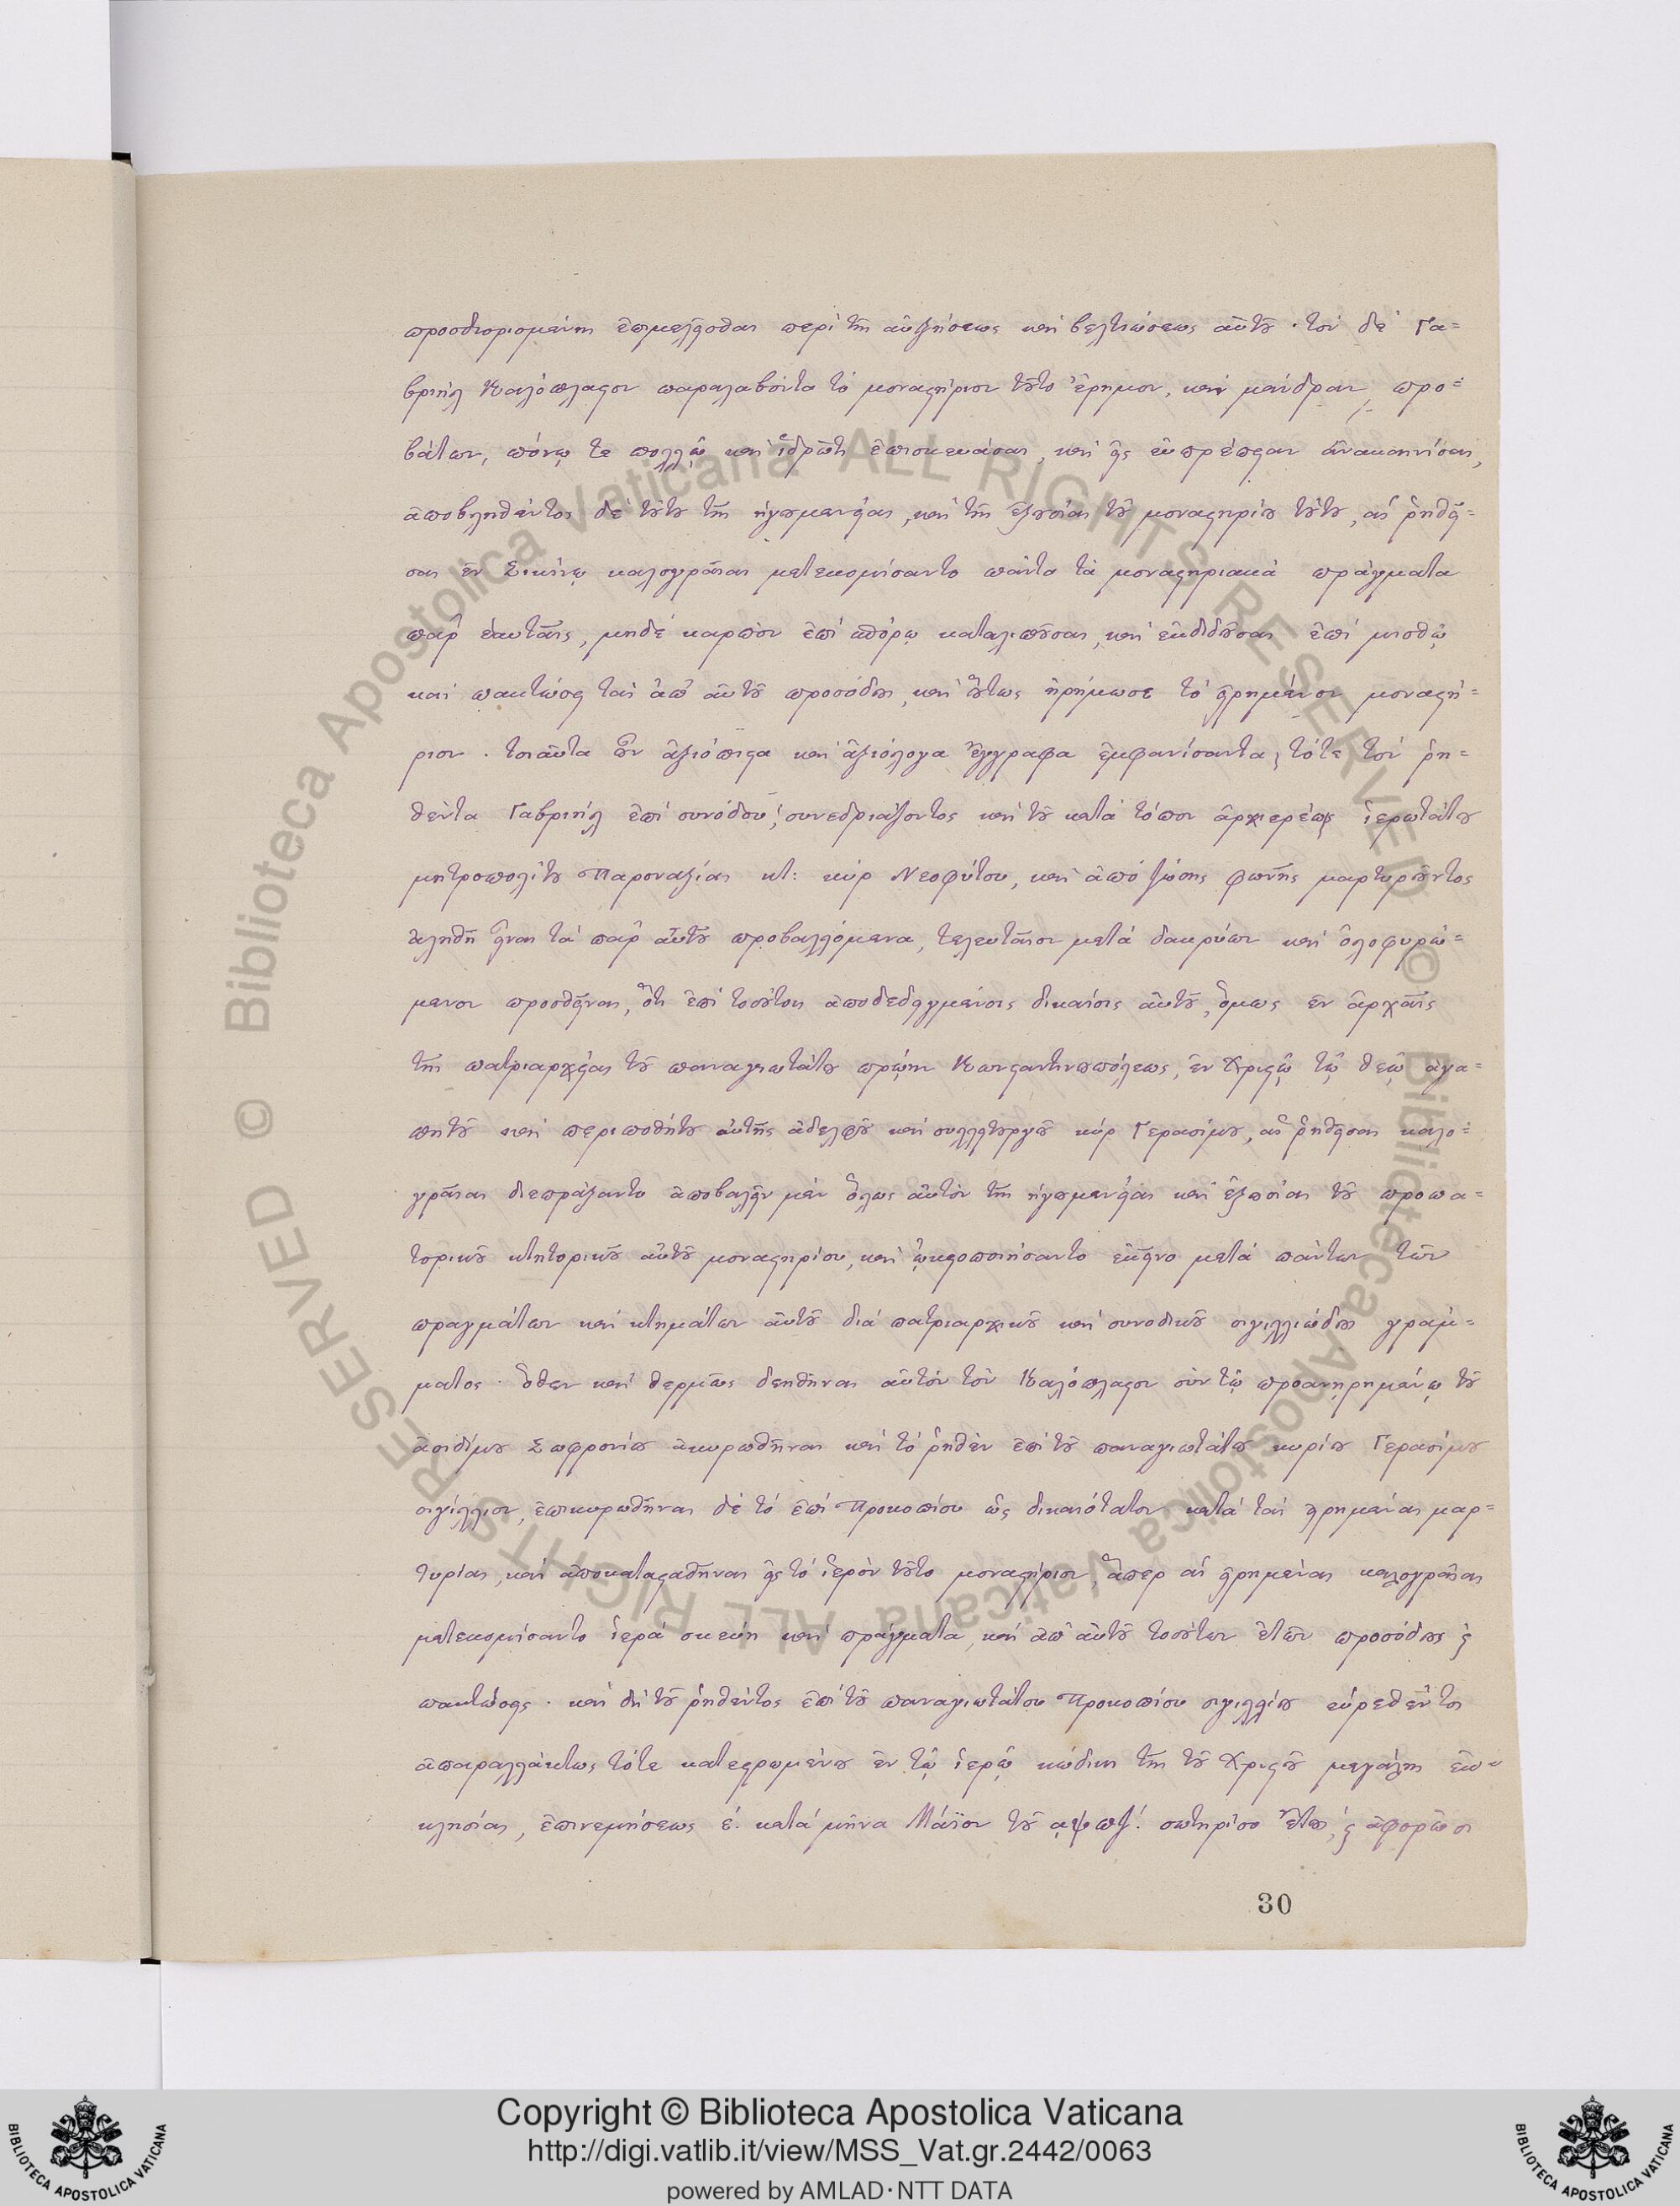 προσδιορισμένης ἐπιμελεῖσθαι περὶ τῆς αὐξήσεως καὶ βελτιώσεως αὐτοῦ · τὸν δὲ Γα=
βριὴλ Καλόπλαστον παραλαβόντα τὸ μοναστήριον τοῦτο ἔρημον, καὶ μάνδραν προ=
βάτων, πόνῳ τε πολλῷ καὶ ἱδρῶτι ἐπισκευάσαι, καὶ εἰς εὐπρέπειαν ἀνακαινίσαι,
ἀποβληθέντος δὲ τούτου τῆς ἡγουμενείας, καὶ τῆς ἐξουσίας τοῦ μοναστηρίου τούτου, αἱ ῥηθεῖ=
σαι ἐν Σικίνῳ καλογραῖαι μετεκομίσαντο πάντα τὰ μοναστηριακὰ πράγματα
παρ' ἑαυταῖς, μηδὲ καρπὸν ἐπὶ σπόρῳ καταλιποῦσαι, καὶ ἐκδιδοῦσαι ἐπὶ μισθῷ
καὶ πακτώσει τὰς ἀπ' αὐτοῦ προσόδους, καὶ οὕτως ἠρήμωσε τὸ εἰρημένον μοναστή=
ριον · τοιαῦτα οὖν ἀξιόπιστα καὶ ἀξιόλογα ἔγγραφα ἐμφανίσαντα, τότε τὸν ῥη=
θέντα Γαβριὴλ ἐπὶ συνόδου, συνεδριάζοντος καὶ τοῦ κατὰ τόπον ἀρχιερέως ἱερωτάτου
μητροπολίτου Παροναξίας κτ: κὺρ Νεοφύτου, καὶ ἀπὸ ζώσης φωνῆς μαρτυροῦντος
ἀληθῆ εἶναι τὰ παρ' αὐτοῦ προβαλλόμενα, τελευταῖον μετὰ δακρύων καὶ ὀλοφυρώ=
μενον προσθεῖναι, ὅτι ἐπὶ τοσούτοις ἀποδεδειγμένοις δικαίοις αὐτοῦ, ὅμως ἐν ἀρχαῖς
τῆς πατριαρχείας τοῦ παναγιωτάτου πρώην Κωνσταντινουπόλεως, ἐν Χριστῷ τῷ Θεῷ ἀγα=
πητοῦ καὶ περιποθήτου αὐτῆς ἀδελφοῦ καὶ συλλειτουργοῦ κὺρ Γερασίμου, αἱ ῥηθεῖσαι καλο=
γραῖαι διεπράξαντο ἀποβαλεῖν μὲν ὅλως αὐτὸν τῆς ἡγουμενείας καὶ ἐξουσίας τοῦ προπα=
τορικοῦ κτητορικοῦ αὐτοῦ μοναστηρίου, καὶ ᾠκειοποιήσαντο ἐκεῖνο μετὰ πάντων τῶν
πραγμάτων καὶ κτημάτων αὐτοῦ διὰ πατριαρχικοῦ καὶ συνοδικοῦ σιγιλλιώδους γράμ=
ματος · ὅθεν καὶ θερμῶς δεηθῆναι αὐτὸν τὸν Καλόπλαστον σὺν τῷ προανῃρημένῳ τοῦ
ἀοιδίμου Σωφρονίου ἀκυρωθῆναι καὶ τὸ ῥηθὲν ἐπὶ τοῦ παναγιωτάτου κυρίου Γερασίμου
σιγίλλιον, ἐπικυρωθῆναι δὲ τὸ ἐπὶ Προκοπίου ὡς δικαιότατον κατὰ τὰς εἰρημένας μαρ=
τυρίας, καὶ ἀποκατασταθῆναι εἰς τὸ ἱερὸν τοῦτο μοναστήριον, ἅπερ αἱ εἰρημέναι καλογραῖαι
μετεκομίσαντο ἱερὰ σκεύη καὶ πράγματα, καὶ ἀπ' αὐτοῦ τοσούτων ἐτῶν προσόδους ϛ
πακτώσεις · καὶ δὴ τοῦ ῥηθέντος ἐπὶ τοῦ παναγιωτάτου Προκοπίου σιγιλλίου εὑρεθέντος
ἀπαραλλάκτως τότε κατεστρωμένου ἐν τῷ ἱερῷ κώδικι τῆς τοῦ Χριστοῦ μεγάλης ἐκ=
κλησίας, ἐπινεμήσεως ε΄. κατὰ μῆνα Μάϊον τοῦ αψπζ΄. σωτηρίου ἔτους, ϛ ἀφορῶσι
30
© Biblioteca Apostolica Vaticana ALL RIGHTS RESERVED
© Biblioteca Apostolica Vaticana ALL RIGHTS RESERVED
Copyright © Biblioteca Apostolica Vaticana
http://digi.vatlib.it/view/MSS_Vat.gr.2442/0063
powered by AMLAD·NTT DATA
BIBLIOTECA APOSTOLICA VATICANA
BIBLIOTECA APOSTOLICA VATICANA